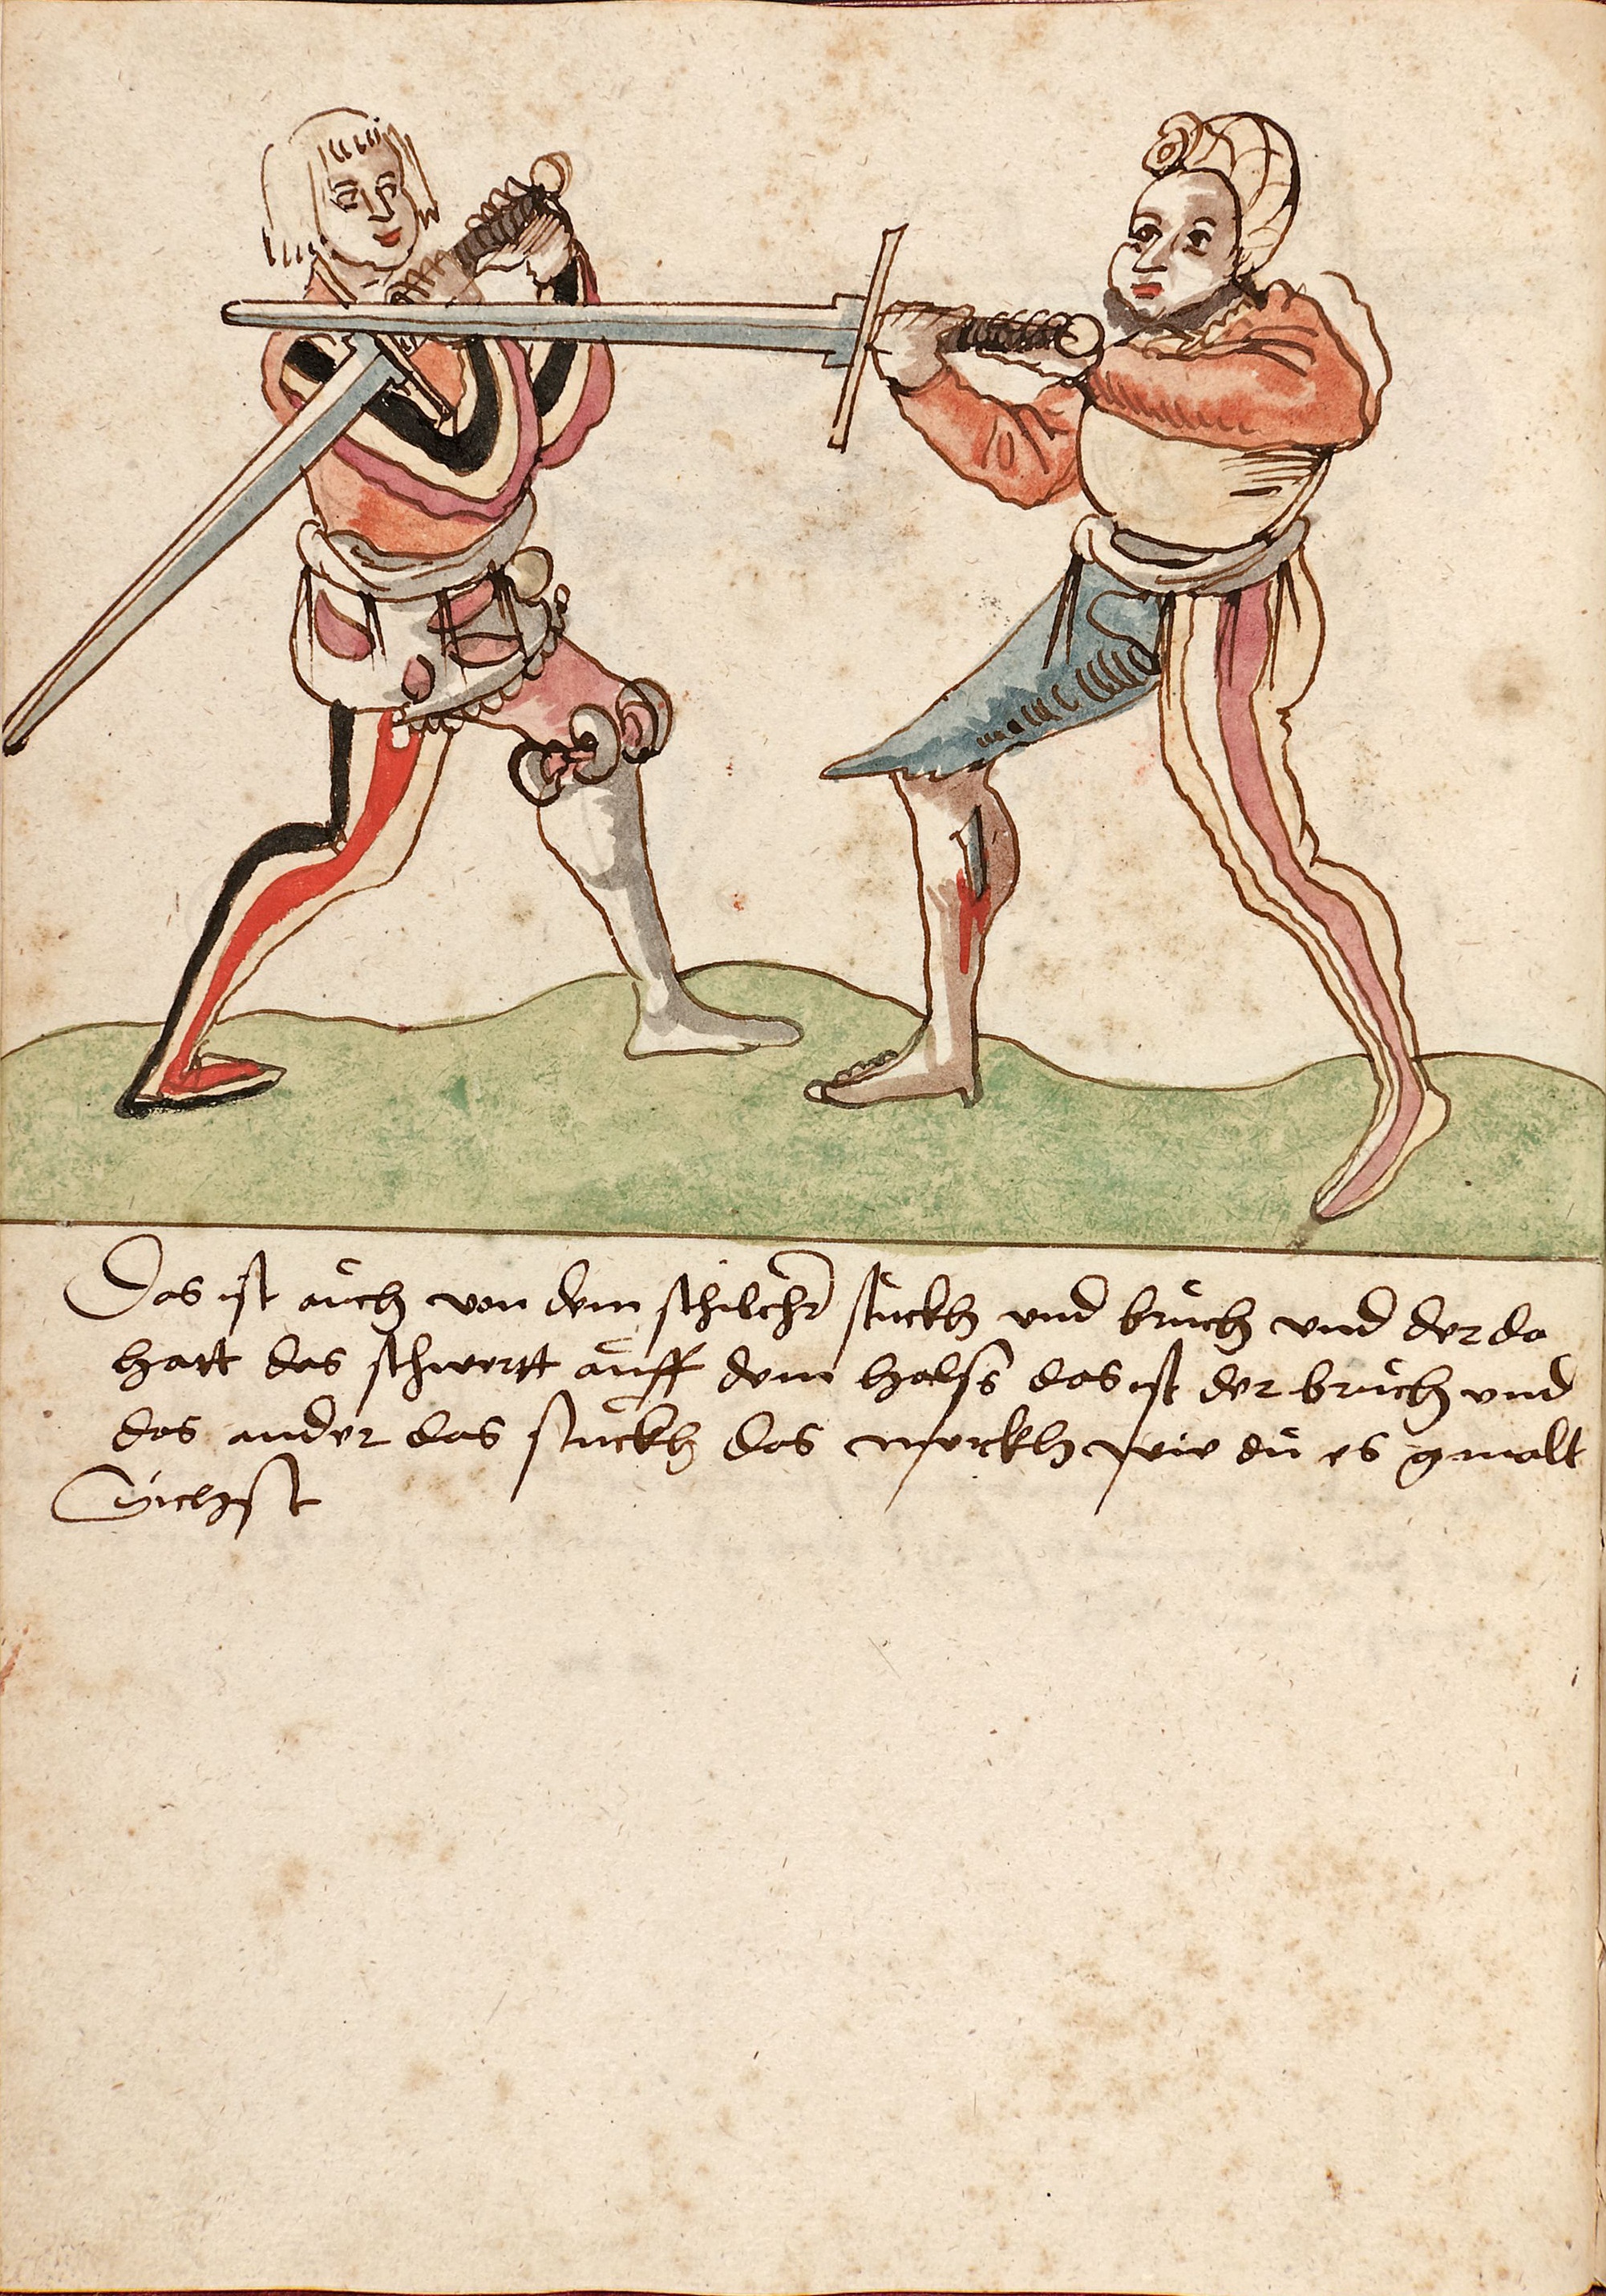 Das ist aŭch von dem schilchr̄ stuckh vnd brŭch vnd der da
hatt das schwertt aŭff dem halsß das ist der brŭch vnd
das ander das stŭckh das merckh wie dŭ es gmalt
Sichst